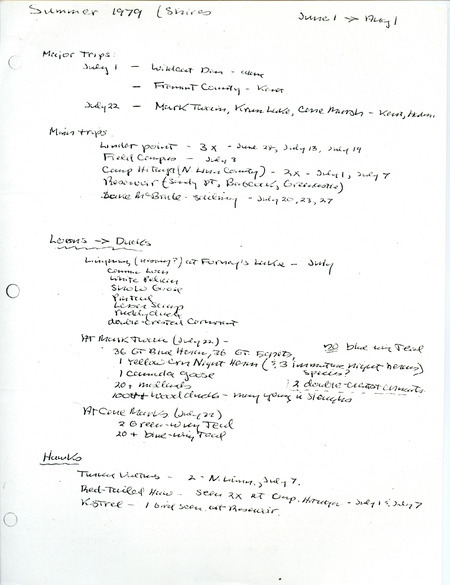 Summer 1979 (Shires
June 1 → Aug 1
Major Trips:
July 1 – Wildcat Den –
– Fremont County – Kent
July 22 – Mark Twain, Krum Lake, Cone Marsh – Kent,
Main trips
Linder point – 3x – June 28, July 13, July 19
Field Campus – July 3
Camp Hitaga (N. Linn County) – 2x – July 1, July 7
Reservoir (Sandy Pt,
– July 20, 23, 27
Loons → Ducks
(injury?) at Forney's Lake – July
Common Loon
White Pelican
Snow Goose
Pintail
Lesser Scaup
Ruddy duck
double-crested Cormorant
At Mark Twain (July 22) –
36 Gt Blue Heron, 36 Gt Egrets, 20 blue wing Teal
1 Yellow Crn Night Heron (& 3 immature night herons)
species?
1 Canada goose
20+ mallards
2 double-crested cormorants
100++ Wood ducks – many young in sloughs
At Cone Marsh (July 22)
2 Green-wing Teal
20+ blue-wing Teal
Hawks
Turkey Vultures – 2 – N. Linn, July 7.
Red-Tailed Hawk – seen 2x at Camp Hitaga – July 1 & July 7
Kestrel – 1 bird seen at Reservoir.